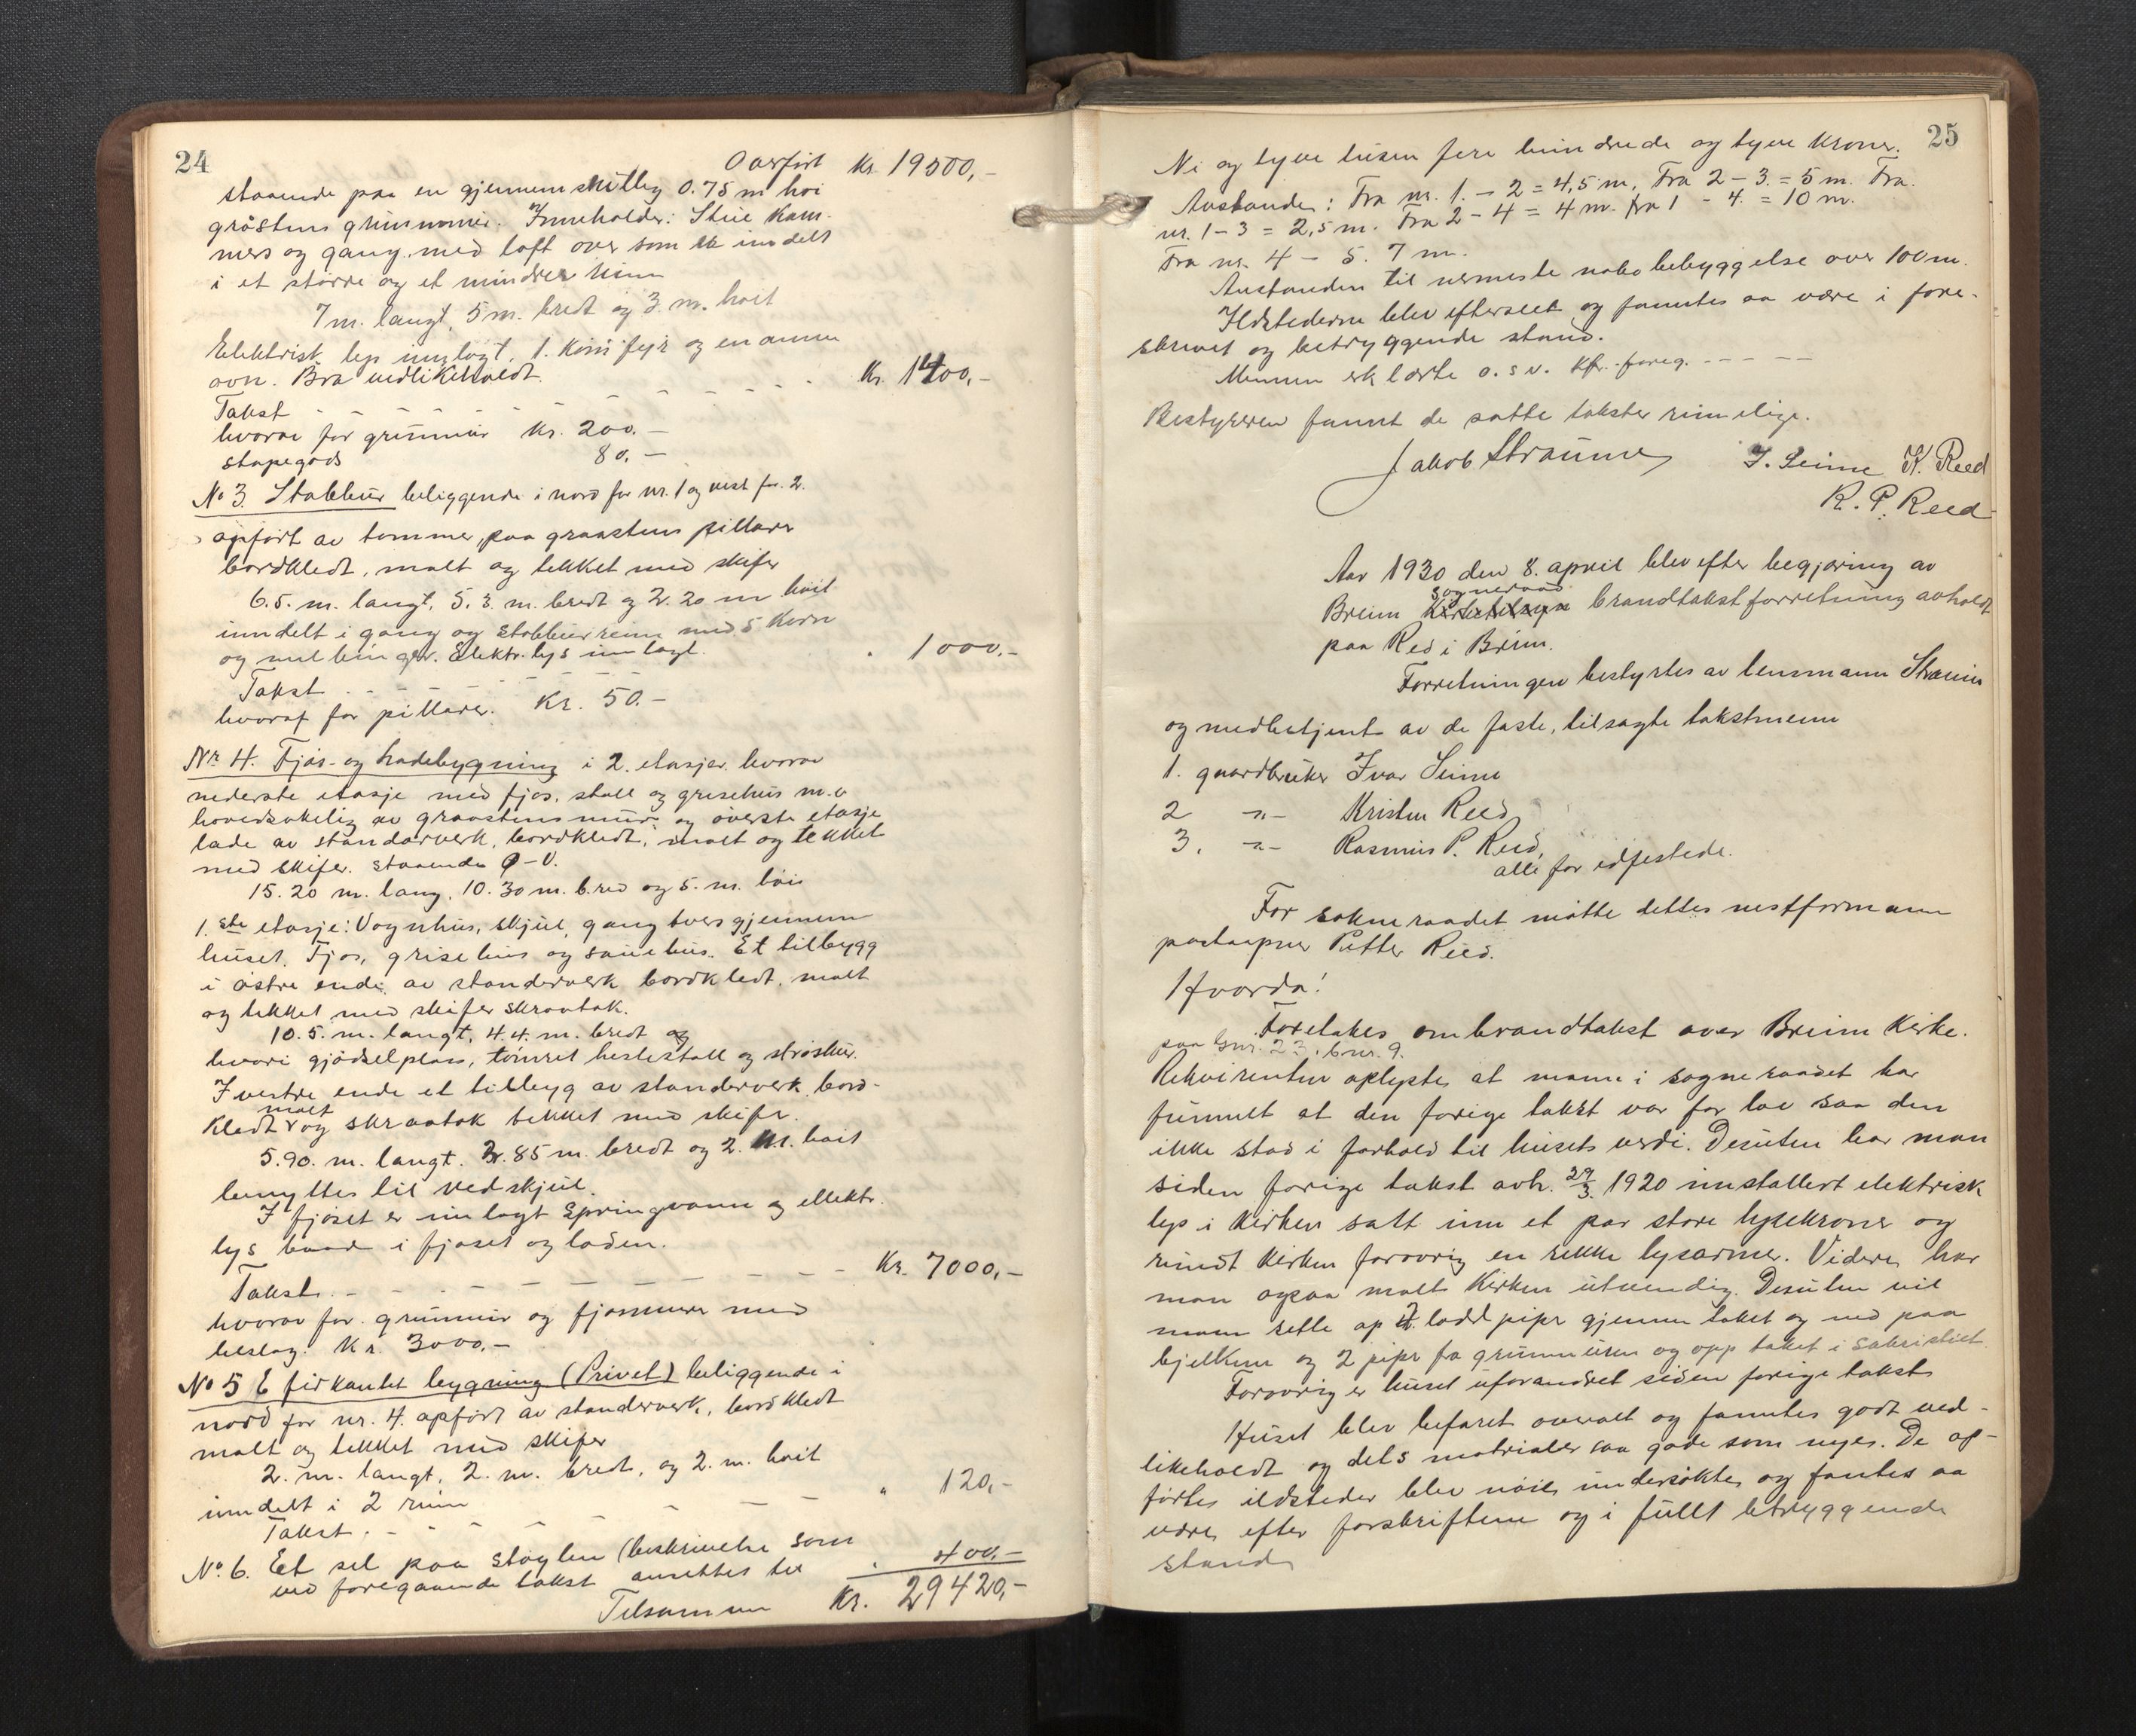 24
Overført Kr. 19500,-
staaende paa en gjennemsnitlig 0.75 m høi
gråstens grunnmur. Inneholder: Stue Kam-
mers og gang, med loft over som er inndelt
i et større og et mindre rum
7 m. langt, 5 m. bredt og 3. m. høit
Elektrisk lys innlagt, 1. Komfyr og en annen
ovn. Bra vedlikeholdt.
Takst - - - - - - - - Kr. 1400,-
hvorav for grunnmur Kr. 200.-
støpegods 80.-
No 3. Stabbur beliggende i nord for nr. 1 og vest for 2.
opført av tømmer, paa graastens pillarer
bordkledt, malt og tekket med skifer
6.5. m. langt, 5.3. m. bredt og 2.20 m høit
inndelt i gang og stabbursrum med 5 Korn
og mel binger. Elektr. lys innlagt.
Takst - - - - - " 1000.-
hvoraf for pillarer. Kr. 50.-
Nr. 4. Fjøs- og ladebygning i 2. etasjer. hvorav
nederste etasje med fjøs, stall og grisehus m.v
hovedsakelig av graastensmur og øverste etasje
lade av standerverk, bordkledt, malt og tekket
med skifer. staaende Ø-V.
15.20 m. lang, 10.30 m. bred og 5. m. høi
1.ste etasje: Vognhus, skjul, gang tvers gjennem
huset. Fjøs, grisehus og sauehus. Et tilbygg
i østre ende av standerverk bordkledt, malt
og tekket med skifer skraatak.
10.5. m. langt, 4.4. m. bredt og
hvori gjødselplass, tømret hestestall og strøskur.
I vestre ende et tilbyg av standerverk, bord-
malt
kledt og skraatak tekket med skifer.
5.90. m. langt. 2.85 m. bredt og 2. m. høit
benyttes til vedskjul.
I fjøset er innlagt springvann og elektr.
lys baade i fjøset og laden.
Takst. - - - - - - - - Kr. 7000,-
hvorav for grunnmur og fjøsmurer med
beslag. Kr. 3000,-
No 5 E firkantet bygning (Privet) beliggende i
nord for nr. 4. opført av standerverk, bordkledt
malt og tekket med skifer
2. m. langt, 2. m. bredt, og 2. m. høit
inndelt i 2 rum
Takst. - - - - - - - " 120,-
No. 6. Et sel paa støylen (beskrivelse som
ved foregaaende takst ansettes til " 400,-
Tilsammen Kr. 29420,-
25
Ni og tyve tusen fire hundrede og tyve Kroner.
Avstander: Fra nr. 1. - 2 = 4,5 m. Fra 2 - 3. = 5 m. Fra
nr. 1 - 3 = 2,5 m. Fra 2 - 4 = 4 m. Fra 1 - 4. = 10 m.
Fra nr. 4 - 5. 7 m.
Avstanden til nermeste nabobebyggelse over 100 m.
Ildstederne blev efterseet og fanntes aa være i fore-
skrevet og betryggende stand.
Mennene erklærte o.s.v. kfr. foreg. - - - - -
Bestyreren fannt de satte takster rimelige.
Jakob Straume I. Seime K. Reed
R. P. Reed
Aar 1930 den 8. april blev efter begjæring av
sogneraad
Breim brandtakstforretning avholdt
paa Red i Breim.
Forretningen bestyrtes av lensmann Straume
og medbetjent av de faste, tilsagte takstmenn
1. gaardbruker Ivar Seime
2 -"- Kristen Reed
3. -"- Rasmus P. Reed,
alle før edfestede.
For sokneraadet møtte dettes nestformann
postaapner Petter Reed.
Hvorda!
Foretakes om brandtakst over Breim Kirke.
paa gnr. 23, bnr. 9.
Rekvirenten oplyste at mann i sogneraadet har
funnet at den forige takst var for lav saa den
ikke stod i forhold til husets verdi. Desuten har man
siden forige takst avh. 27/3 1920 innstallert elektrisk
lys i kirken satt inn et par store lysekroner og
rundt kirken forøvrig en rekke lysarme. Videre har
man ogsaa malt Kirken utvendig. Desuten vil
mann sette op 2 loddpiper gjennem taket og ned paa
bjelkene og 2 piper fra grunnmuren og opp taket i sakristiet
Forøvrig er huset uforandret siden forige takst
Huset blev befaret overalt og fanntes godt ved-
likeholdt og dets matrialer saa gode som nye. De op-
førte ildsteder blev nøie undersøkte og fantes aa
være efter forskriftene og i fullt betryggende
stand